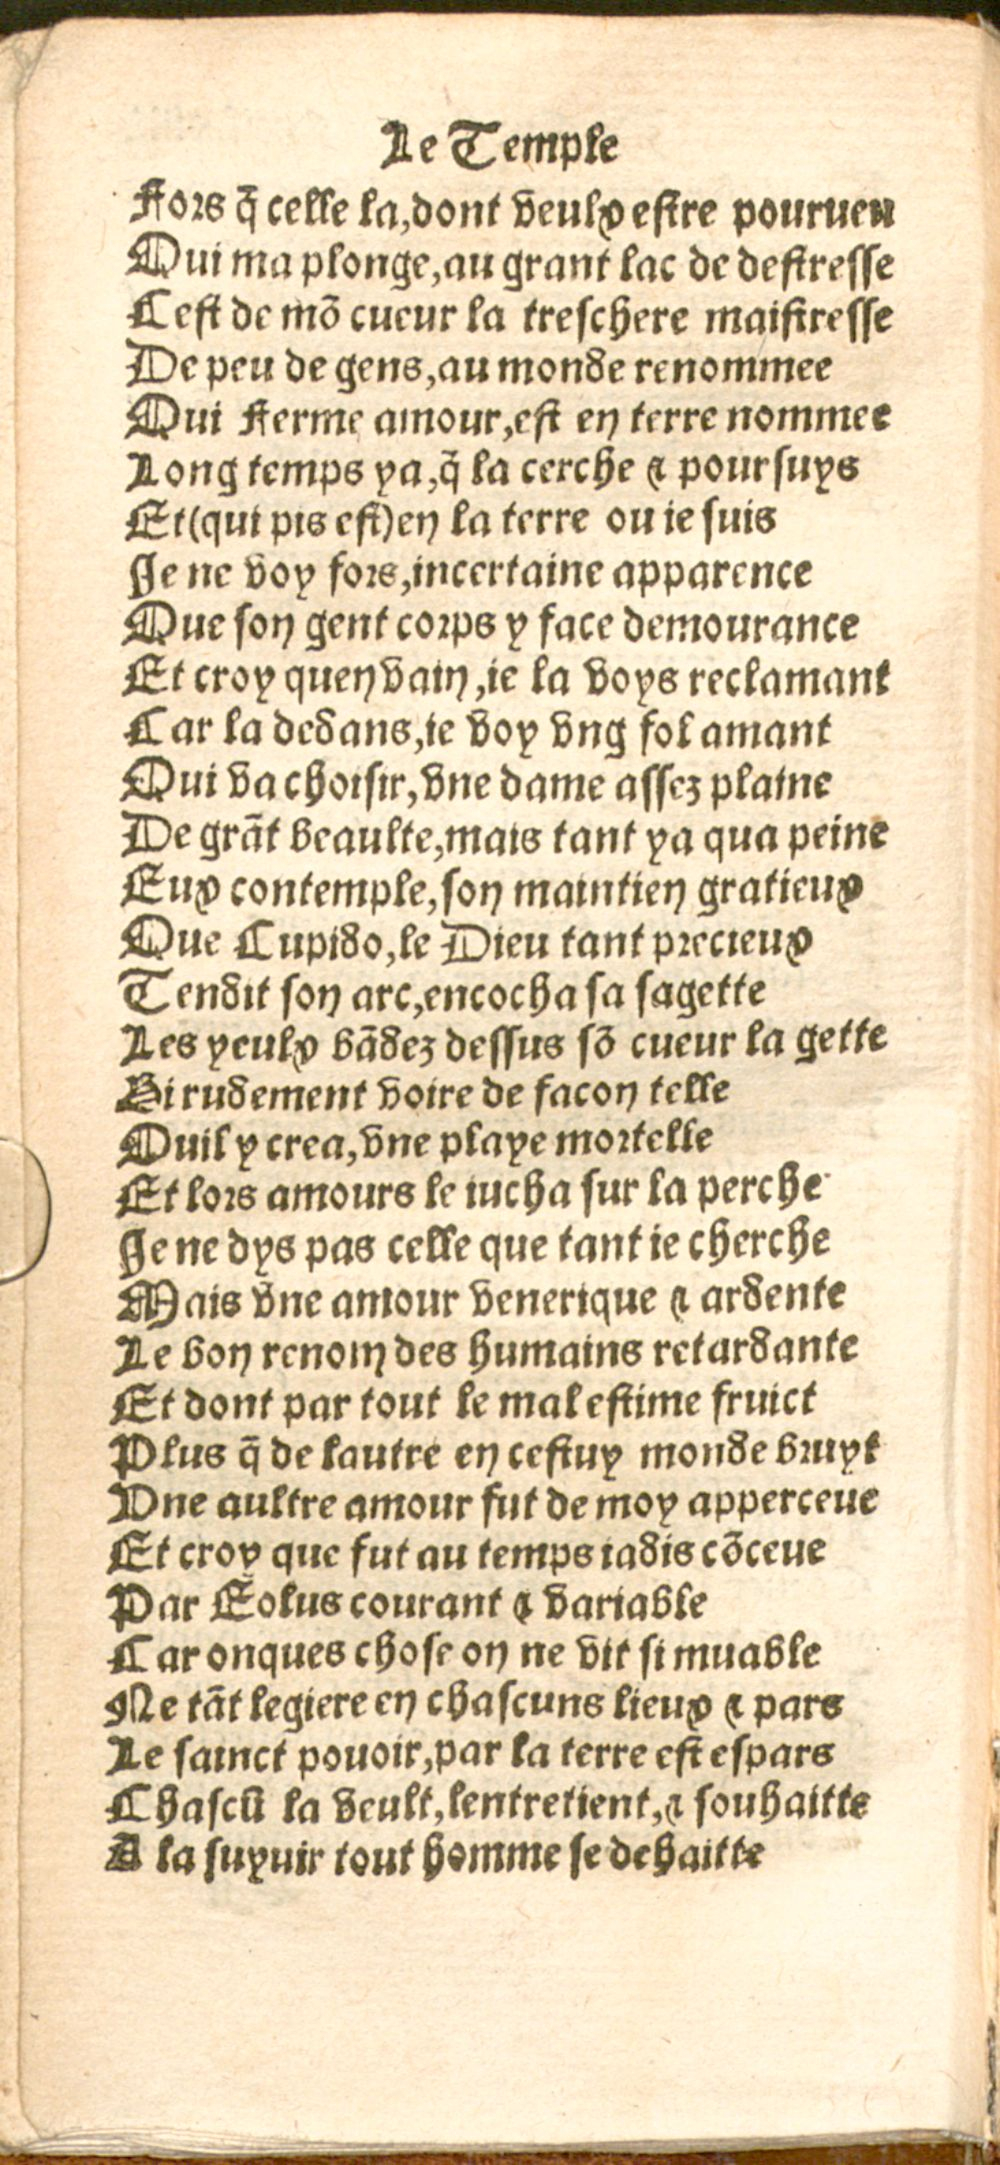 Le Temple
Fors q̃ celle la,dont veulx estre pourueu
Qui ma plonge,au grant lac de destresse
Cest de mõ cueur la treschere maistresse
De peu de gens,au monde renommee
Qui Ferme amour,est en terre nommee
Long temps ya,q̃ la cerche & poursuys
Et(qui pis est)en la terre ou ie suis
Je ne voy fors,incertaine apparence
Que son gent corps y face demourance
Et croy quen vain,ie la voys reclamant
Car la dedans,ie voy vng fol amant
Qui va choisir,vne dame assez plaine
De grãt beaulte,mais tant ya qua peine
Eux contemple,son maintien gratieux
Que Cupido,le Dieu tant precieux
Tendit son arc,encocha sa sagette
Les yeulx bãdez dessus sõ cueur la gette
Si rudement voire de facon telle
Quil y crea,vne playe mortelle
Et lors amours le iucha sur la perche
Je ne dys pas celle que tant ie cherche
Mais vne amour venerique & ardente
Le bon renom des humains retardante
Et dont par tout le mal estime fruict
Plus q̃ de lautre en cestuy monde bruyt
Vne aultre amour fut de moy apperceue
Et croy que fut au temps iadis cõceue
Par Eolus courant & variable
Car onques chose on ne vit si muable
Ne tãt legiere en chascuns lieux & pars
Le sainct pouoir,par la terre est espars
Chascũ la veult,lentretient,& souhaitte
A la suyuir tout homme se dehaitte